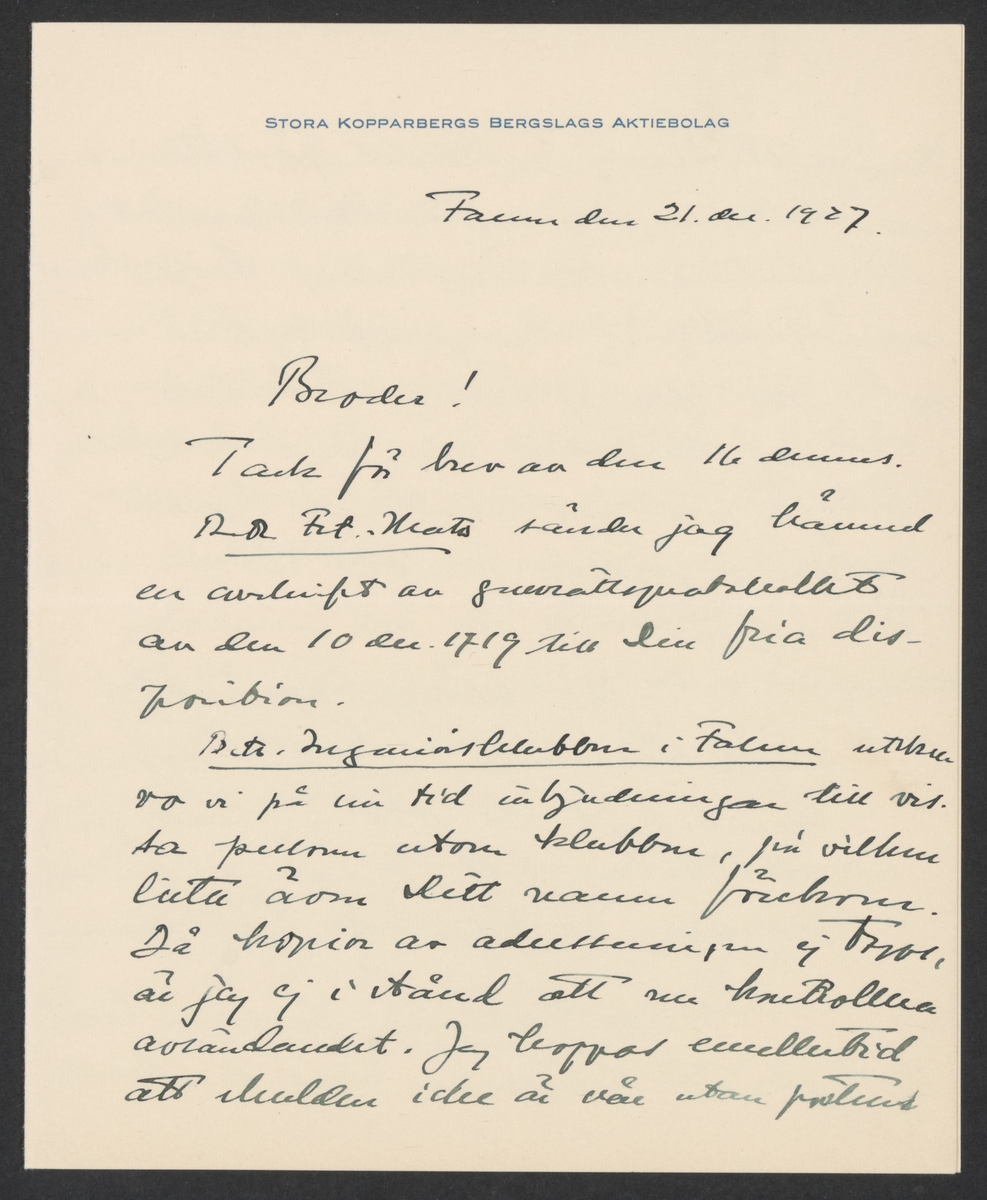 STORA KOPPARBERGS BERGSLAGS AKTIEBOLAG
Falun den 21. dec. 1927.
Broder!
Tack för brev av den 16 dennes.
Fet-Mats sänder jag härmed
en avskrift av gruvrättsprotokollet
av den 10 dec. 1719 till Din fria dis-
position.
Betr. Ingeniörsklubben i Falun utskre-
vo vi på sin tid inbjudningar till vis-
sa personer utom klubben, på vilken
lista även Ditt namn förekom.
Då kopior av adresseringen ej togos,
är jag ej i stånd att nu kontrollera
avsändandet. Jag hoppas emellertid
att skulden icke är vår utan postens